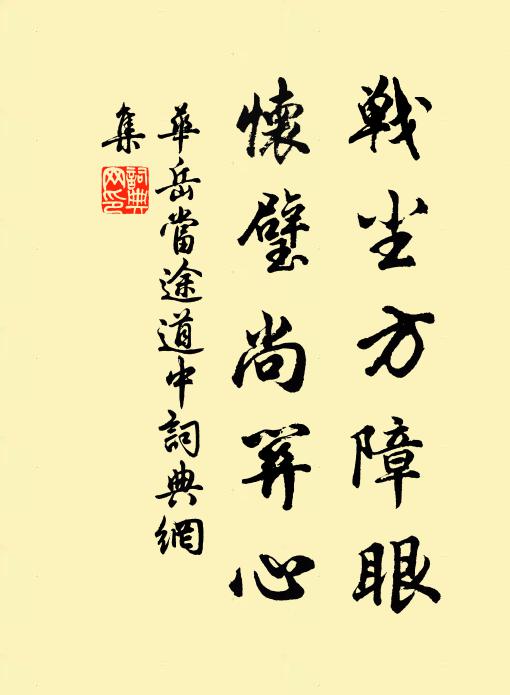 战尘方障眼
懷璧尚关心
華岳當途道中詞典網
集
詞典网印